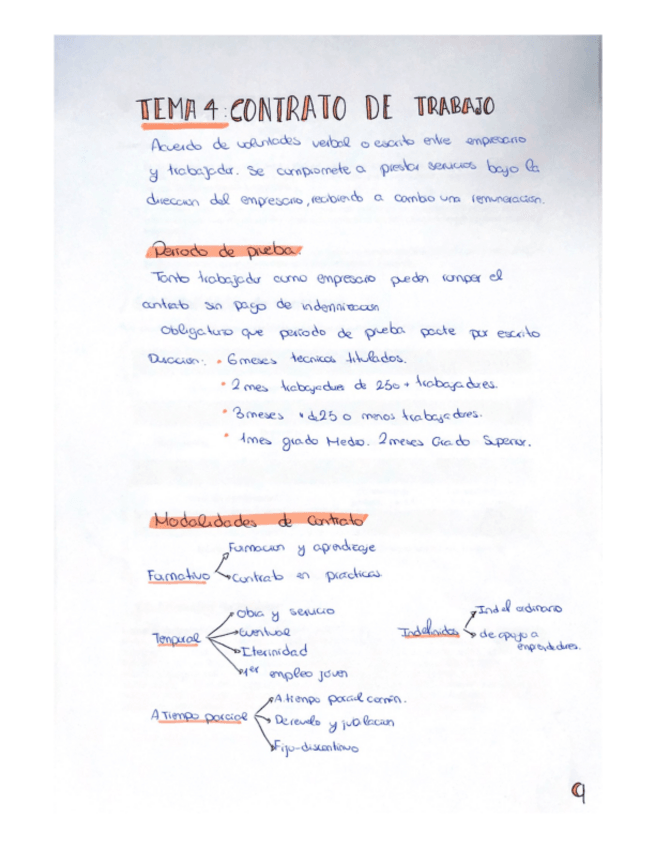 TEMA 4: CONTRATO DE TRABAJO
Acuerdo de voluntades verbal o escrito entre empresario
y trabajador. Se compromete a prestar servicios bajo la
direccion del empresario, recibiendo a cambio una remuneracion.
Periodo de prueba:
Tanto trabajador como empresario pueden romper el
contrato sin pago de indemnizacion
Obligatorio que periodo de prueba pacte por escrito
Duracion: • 6 meses tecnicos titulados.
• 2 mes trabajadores de 25 o + trabajadores.
• 3 meses • d 25 o menos trabajadores.
• 1 mes grado Medio. 2 meses Grado Superior.
Modalidades de Contrato
Formacion y aprendizaje
Formativo
Contrato en practicas
Obra y servicio
Temporal
Eventual
Iterinidad
1er empleo joven
Indef ordinario
Indefinidos
de apoyo a
emprendedores.
A tiempo parcial común.
A Tiempo parcial
De relevo y jubilacion
Fijo-discontinuo
9